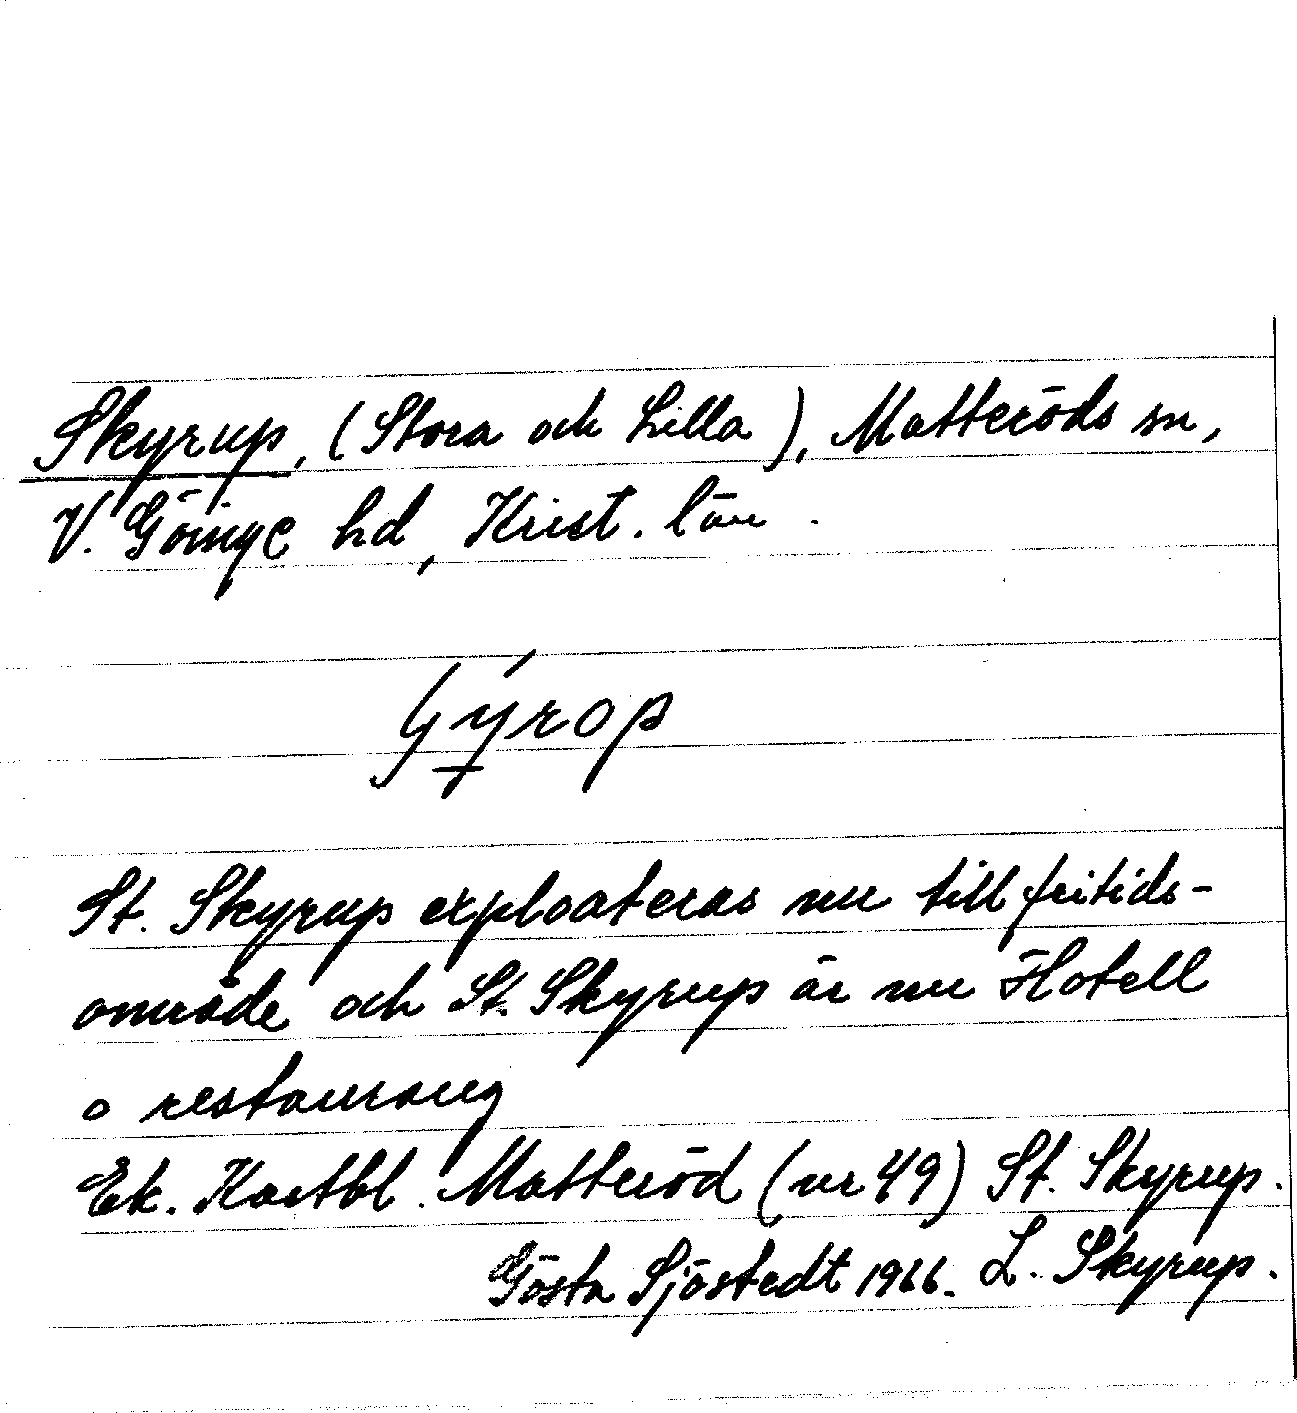 Skyrup, (Stora och Lilla), Matteröds sn,
V. Göinge hd, Krist. län.
St. Skyrup exploateras nu till fritids-
område och St. Skyrup är nu Hotell
o restaurang
Ek. Kartbl. Matteröd (nr 49) St. Skyrup.
L. Skyrup.
Gösta Sjöstedt 1966.